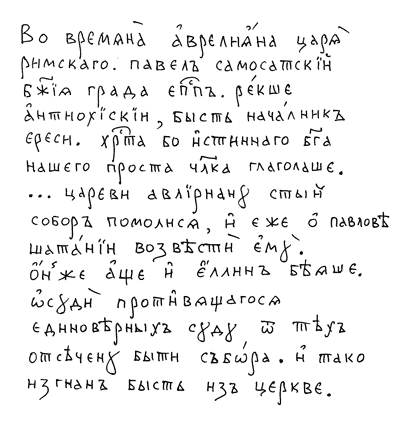 Во времѧна̀ а҆врелиа́на царѧ̀
римскаго. павелъ самосатскїй
бж҃їѧ града еп҃с̾пъ. ре́кше
а҆нтиохїскїи, бысть нача́лникъ
ереси. хрⷭ҇та бо и҆стиннаго бг҃а
нашего проста чл҃ка глаголаше.
... цареви авлїрианꙋ ст҃ый
соборъ помолисѧ, и҆ еже о҆ павловѣ
шата́нїи возвѣстѝ ємꙋ̀.
ѻ҆́нже а҆ще и҆ є҆́ллинъ бѣѧше.
ѡ҆сꙋдѝ проти́вѧщагосѧ
единовѣ́рныхъ сꙋдꙋ ѿ тѣхъ
отсѣченꙋ быти събѡ́ра. и҆ тако
изгнанъ бысть изъ церкве.